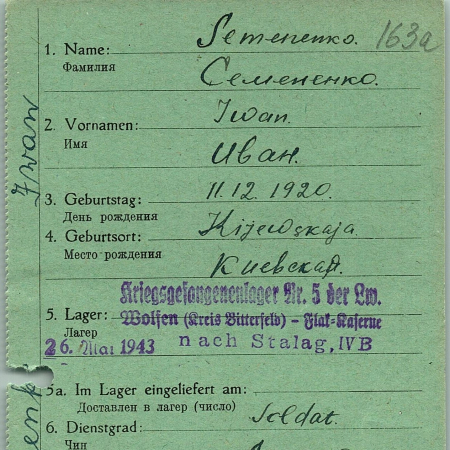 163a
1. Name: Semenenko.
Фамилия Семененко.
2. Vornamen: Iwan.
Имя Иван.
3. Geburtstag: 11.12.1920.
День рождения
4. Geburtsort: Kijewskaja
Место рождения Киевская.
Kriegsgefangenenlager Nr. 5 der Lw.
5. Lager: Wolfen (Kreis Bitterfeld) – Flak-Kaserne
Лагер
26. Mai 1943 nach Stalag, IV B
5a. Im Lager eingeliefert am:
Доставлен в лагер (число)
6. Dienstgrad: Soldat.
Чин
Iwan